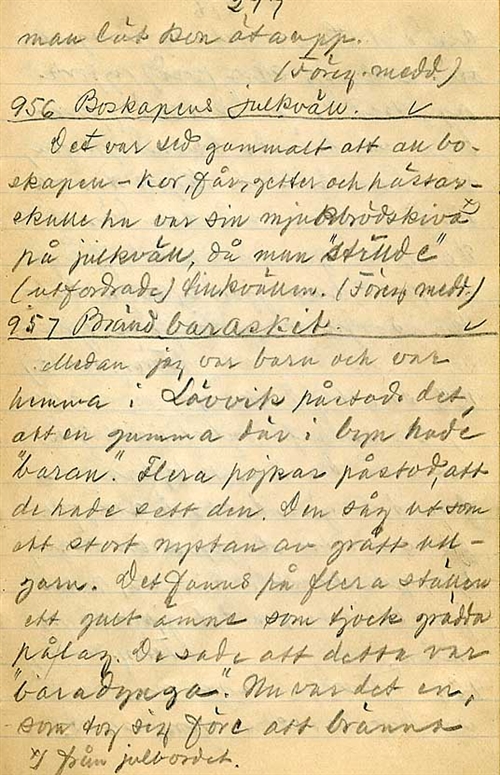 277
man lät kon äta upp.
(Föreg. medd.)
956 Boskapens julkväll. ✓
Det var sed gammalt att all bo-
skapen - kor, får, getter och hästar -
skulle ha var sin mjukbrödskiva x)
på julkväll, då man "strilde"
(utfordrade) linkvällen. (Föreg. medd.)
957 Bränd baraskit. ✓
Medan jag var barn och var
hemma i Lövvik påstods det,
att en gumma där i byn hade
"baran". Flera pojkar påstod, att
de hade sett den. Den såg ut som
ett stort nystan av grått ull-
garn. Det fanns på flera ställen
ett gult ämne som tjock grädda
pålag. De sade att detta var
"baradynga". Nu var det en,
som tog sig före att bränna
x) från julbordet.